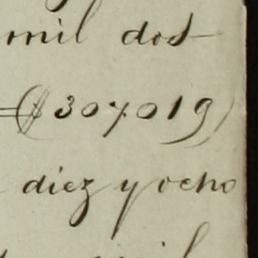 mil dos
=($ 307.019)
diez y ocho